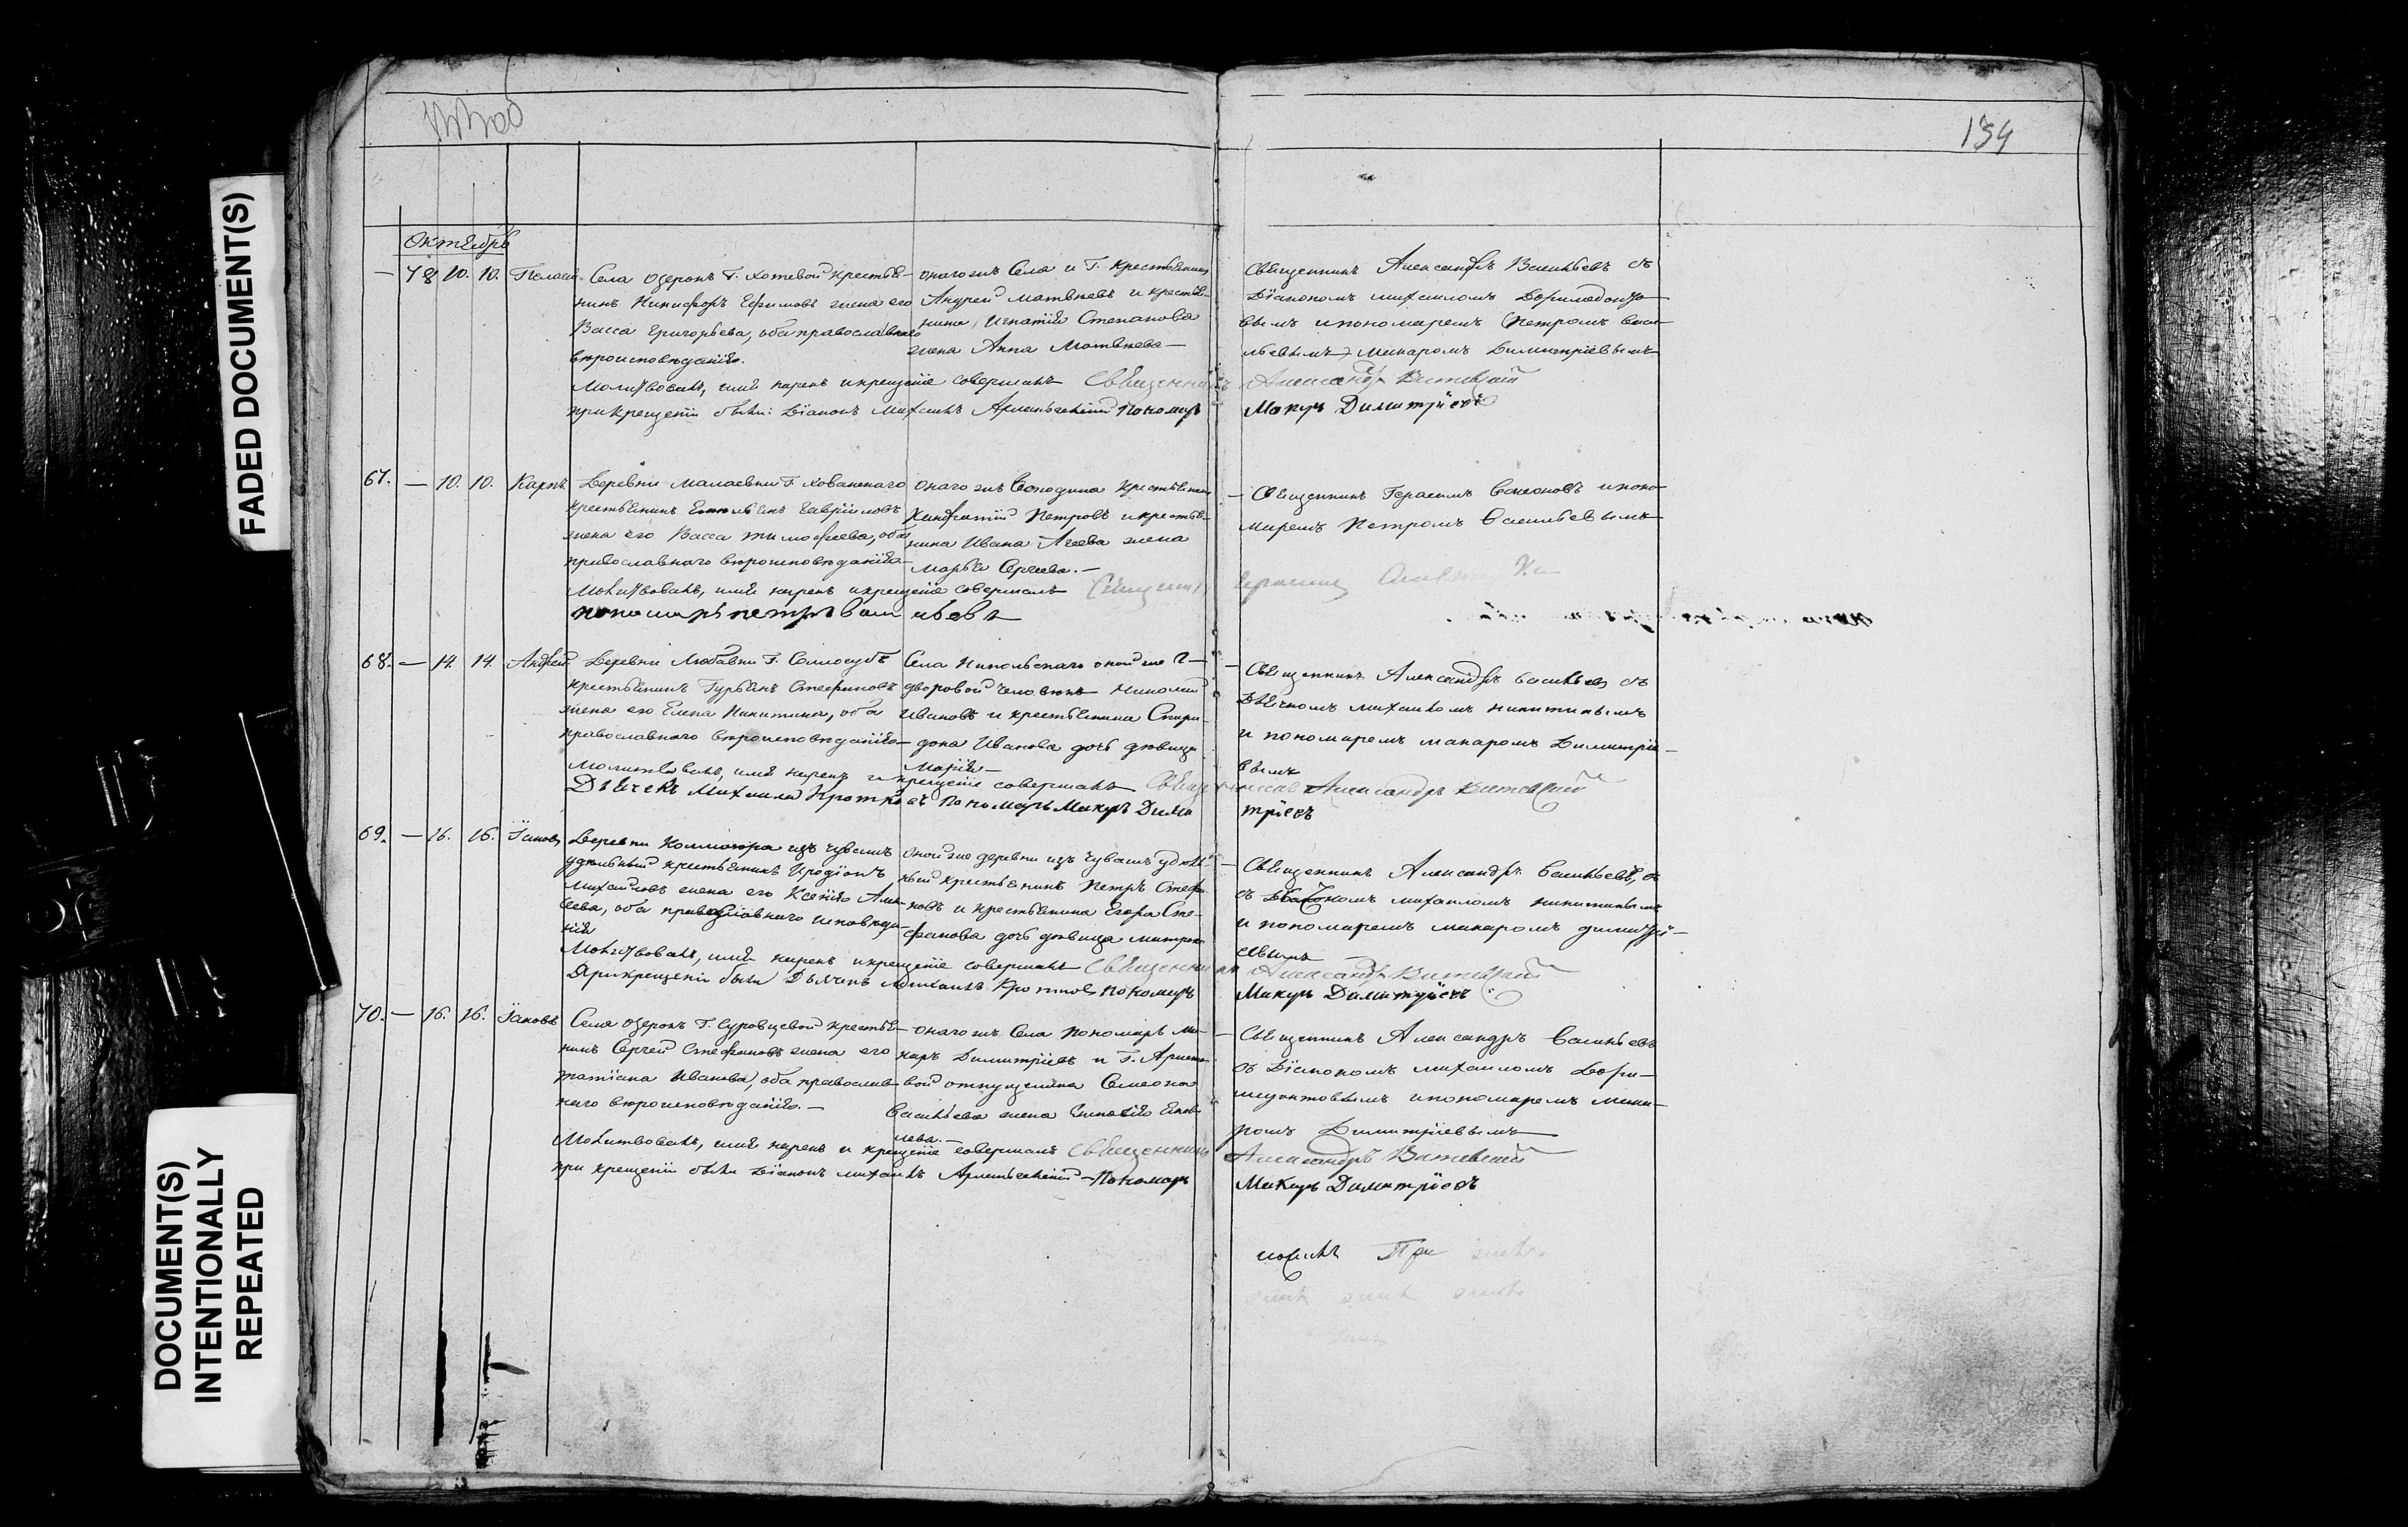 FADED DOCUMENT(S)
DOCUMENT(S)
INTENTIONALLY
REPEATED
134
Октябрь
— 78 10. 10. Пелагія
Села Озерокъ Г. Хотевой крестья-
нинъ Никифоръ Ефимовъ жена его
Васса Григорьева, оба православнаго
вѣроисповѣданія.
онагожъ Села и Г. крестьянинъ
Андрей Матвѣевъ и крестья-
нина Игнатія Степанова
жена Анна Матвѣева —
Священникъ Александръ Васильевъ съ
Діакономъ Михаиломъ
вымъ и пономаремъ Петромъ Васи-
льевымъ Макаромъ Димитріевымъ
Молитвовалъ, имя нарекъ и крещеніе совершалъ Священникъ Александръ Витевскій
при крещеніи были: Діаконъ Михаилъ Пономарь Макаръ Димитріевъ
67. — 10. 10. Карпъ
Деревни Малаевки Г. Хованскаго
крестьянинъ Емельянъ Гавріиловъ
жена его Васса Тимофеева, оба
православнаго вѣроисповѣданія —
онагожъ Господина крестьянинъ
Кандратій Петровъ и крестья-
нина Ивана Агеева жена
Марья Сергеева. —
— Священникъ Герасимъ Семеновъ и поно-
маремъ Петромъ Васильевымъ
Молитвовалъ, имя нарекъ и крещеніе совершалъ Священникъ Герасимъ
пономарь петръ васильевъ
68. — 14. 14. Андрей
Деревни Любавки Г. Самосудъ
крестьянинъ Гурьянъ Стефановъ
жена его Елена Никитина, оба
православнаго вѣроисповѣданія —
Села Никольскаго оной же Г —
дворовой человѣкъ Николай
Ивановъ и крестьянина Спири-
дона Иванова дочь дѣвица
Марія —
— Священникъ Александръ Васильевъ съ
Дьячкомъ Михаиломъ Никитинымъ
и пономаремъ Макаромъ Димитріе-
вымъ
Молитвовалъ, имя нарекъ и крещеніе совершалъ Священникъ Александръ Витевскій
Дьячекъ Михаилъ Кротковъ Пономарь Макаръ Димитріевъ
69. — 16. 16. Іаковъ
Деревни изъ чувашъ
удѣльный крестьянинъ Иродіонъ
Михайловъ жена его Ксенія Але-
ѣева, оба православнаго исповѣда-
нія
оной же деревни изъ чувашъ удѣль-
ный крестьянинъ Петръ Стефа-
новъ и крестьянина Егора Сте-
фанова дочь дѣвица Матрона
— Священникъ Александръ Васильевъ, съ
съ Дьячкомъ Михаиломъ Никитинымъ
и пономаремъ Макаромъ Димитрі-
евымъ —
Молитвовалъ, имя нарекъ и крещеніе совершалъ Священникъ Александръ Витевскій
При крещеніи были Дьячекъ Михаилъ Кротковъ Пономарь Макаръ Димитріевъ
70. — 16. 16. Іаковъ
Села Озерокъ Г. Суровцевой крестья-
нинъ Сергей Стефановъ жена его
Татіана Иванова, оба православ-
наго вѣроисповѣданія. —
онагожъ Села Пономарь Ма-
каръ Димитріевъ и Г.
вой отпущенна Симеона
Васильева жена
лева. —
— Священникъ Александръ Васильевъ
съ Діакономъ Михаиломъ
и пономаремъ Мака-
ромъ Димитріевымъ
Молитвовалъ, имя нарекъ и крещеніе совершалъ Священникъ Александръ Витевскій
при крещеніи были Діаконъ Михаилъ — Пономарь Макаръ Димитріевъ
При